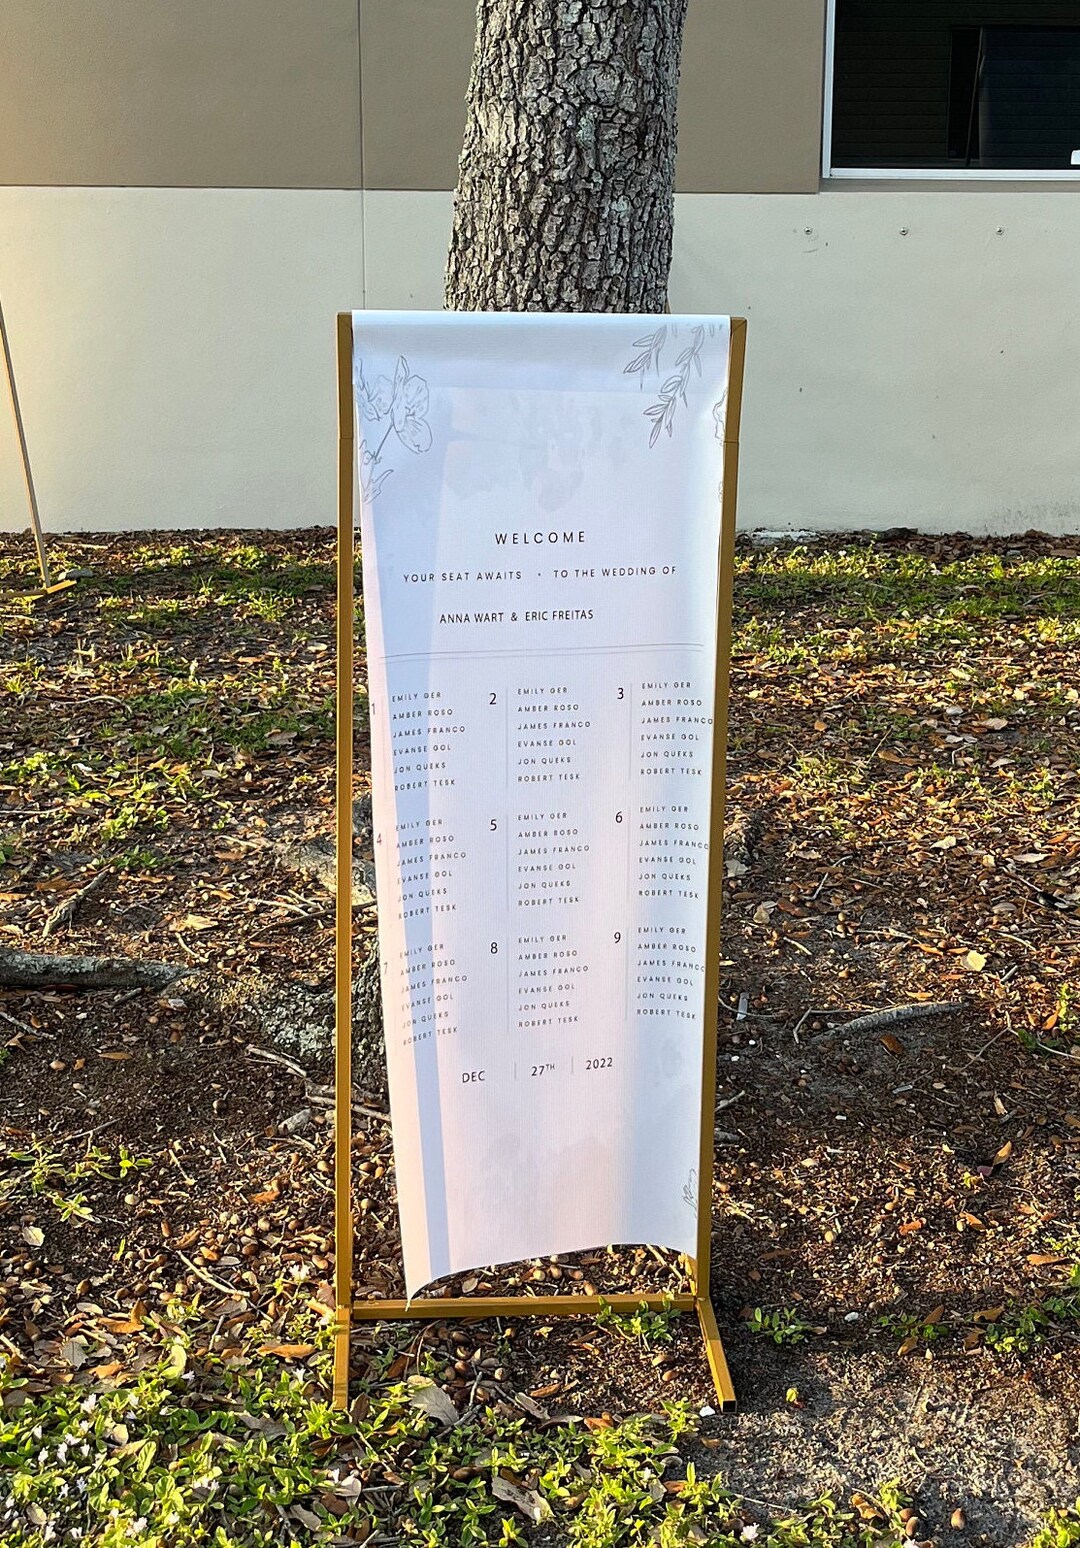 WELCOME
YOUR SEAT AWAITS • TO THE WEDDING OF
ANNA WART & ERIC FREITAS
1
EMILY GER
AMBER ROSO
JAMES FRANCO
EVANSE GOL
JON QUEKS
ROBERT TESK
2
EMILY GER
AMBER ROSO
JAMES FRANCO
EVANSE GOL
JON QUEKS
ROBERT TESK
3
EMILY GER
AMBER ROSO
JAMES FRANCO
EVANSE GOL
JON QUEKS
ROBERT TESK
4
EMILY GER
AMBER ROSO
JAMES FRANCO
EVANSE GOL
JON QUEKS
ROBERT TESK
5
EMILY GER
AMBER ROSO
JAMES FRANCO
EVANSE GOL
JON QUEKS
ROBERT TESK
6
EMILY GER
AMBER ROSO
JAMES FRANCO
EVANSE GOL
JON QUEKS
ROBERT TESK
7
EMILY GER
AMBER ROSO
JAMES FRANCO
EVANSE GOL
JON QUEKS
ROBERT TESK
8
EMILY GER
AMBER ROSO
JAMES FRANCO
EVANSE GOL
JON QUEKS
ROBERT TESK
9
EMILY GER
AMBER ROSO
JAMES FRANCO
EVANSE GOL
JON QUEKS
ROBERT TESK
DEC | 27TH | 2022